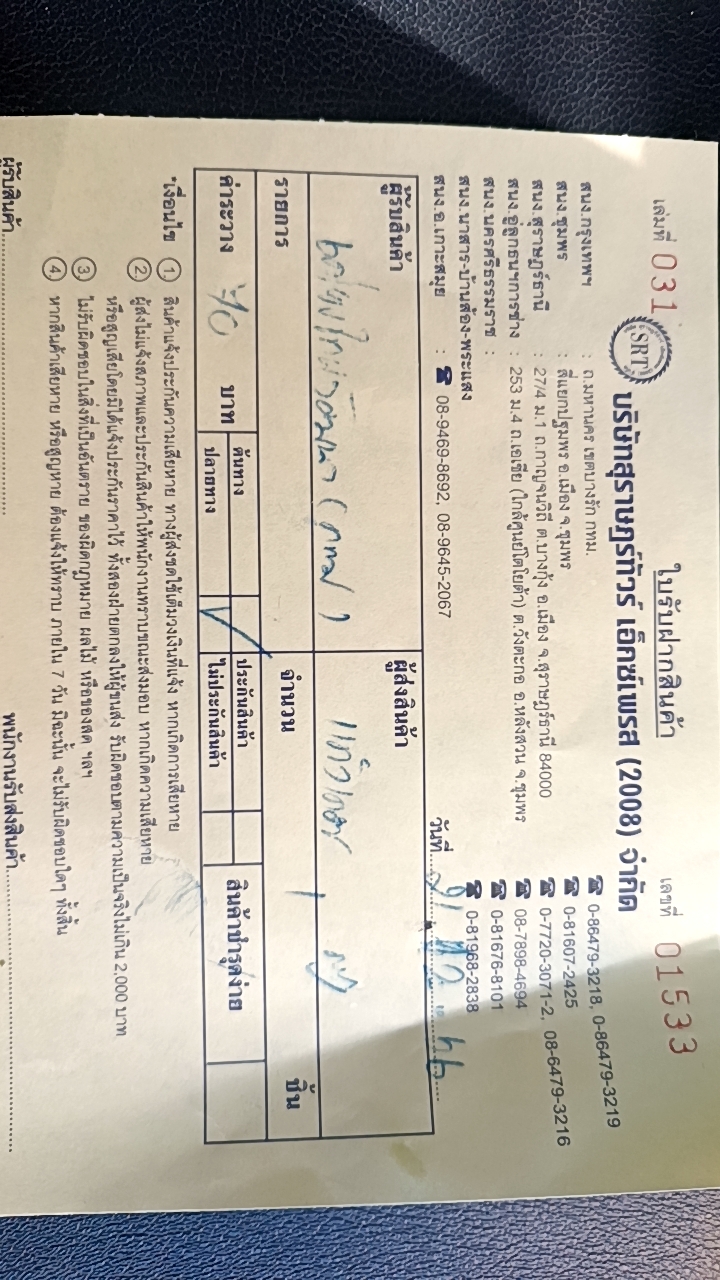 ใบรับฝากสินค้า
เล่มที่ 031
เลขที่ 01533
SRT
บริษัทสุราษฎร์ทัวร์ เอ็กซ์เพรส (2008) จำกัด
สนง.กรุงเทพฯ : ถ.มหานคร เขตบางรัก กทม. ☎ 0-86479-3218, 0-86479-3219
สนง.ชุมพร : สี่แยกปฐมพร อ.เมือง จ.ชุมพร ☎ 0-81607-2425
สนง.สุราษฎร์ธานี : 27/4 ม.1 ถ.กาญจนวิถี ต.บางกุ้ง อ.เมือง จ.สุราษฎร์ธานี 84000 ☎ 0-7720-3071-2, 08-6479-3216
สนง.อู่ลูกธนฯการช่าง : 253 ม.4 ถ.เอเชีย (ใกล้ศูนย์โตโยต้า) ต.วังตะกอ อ.หลังสวน จ.ชุมพร ☎ 08-7898-4694
สนง.นครศรีธรรมราช : ☎ 0-81676-8101
สนง.นาสาร-บ้านส้อง-พระแสง ☎ 0-81968-2838
สนง.อ.เกาะสมุย : ☎ 08-9469-8692, 08-9645-2067
วันที่
ผู้รับสินค้า ผู้ส่งสินค้า
รายการ จำนวน 1 ชิ้น
ค่าระวาง บาท ต้นทาง ประกันสินค้า สินค้าชำรุดง่าย
ปลายทาง ไม่ประกันสินค้า
*เงื่อนไข ① สินค้าแจ้งประกันความเสียหาย ทางผู้ส่งชดใช้เต็มวงเงินที่แจ้ง หากเกิดการเสียหาย
② ผู้ส่งไม่แจ้งสภาพและประกันสินค้าให้พนักงานทราบขณะส่งมอบ หากเกิดความเสียหาย
หรือสูญเสียโดยมิได้แจ้งประกันราคาไว้ ทั้งสองฝ่ายตกลงให้ผู้ขนส่ง รับผิดชอบตามความเป็นจริงไม่เกิน 2,000 บาท
③ ไม่รับผิดชอบในสิ่งที่เป็นอันตราย ของผิดกฎหมาย ผลไม้ หรือของสด ฯลฯ
④ หากสินค้าเสียหาย หรือสูญหาย ต้องแจ้งให้ทราบ ภายใน 7 วัน มิฉะนั้น จะไม่รับผิดชอบใดๆ ทั้งสิ้น
ผู้รับสินค้า พนักงานรับส่งสินค้า